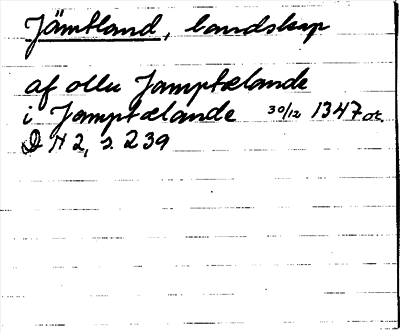 Jämtland, landskap
af ollu Jamptælande
i Jamptælande 30/12 1347 or.
DN 2, s 239